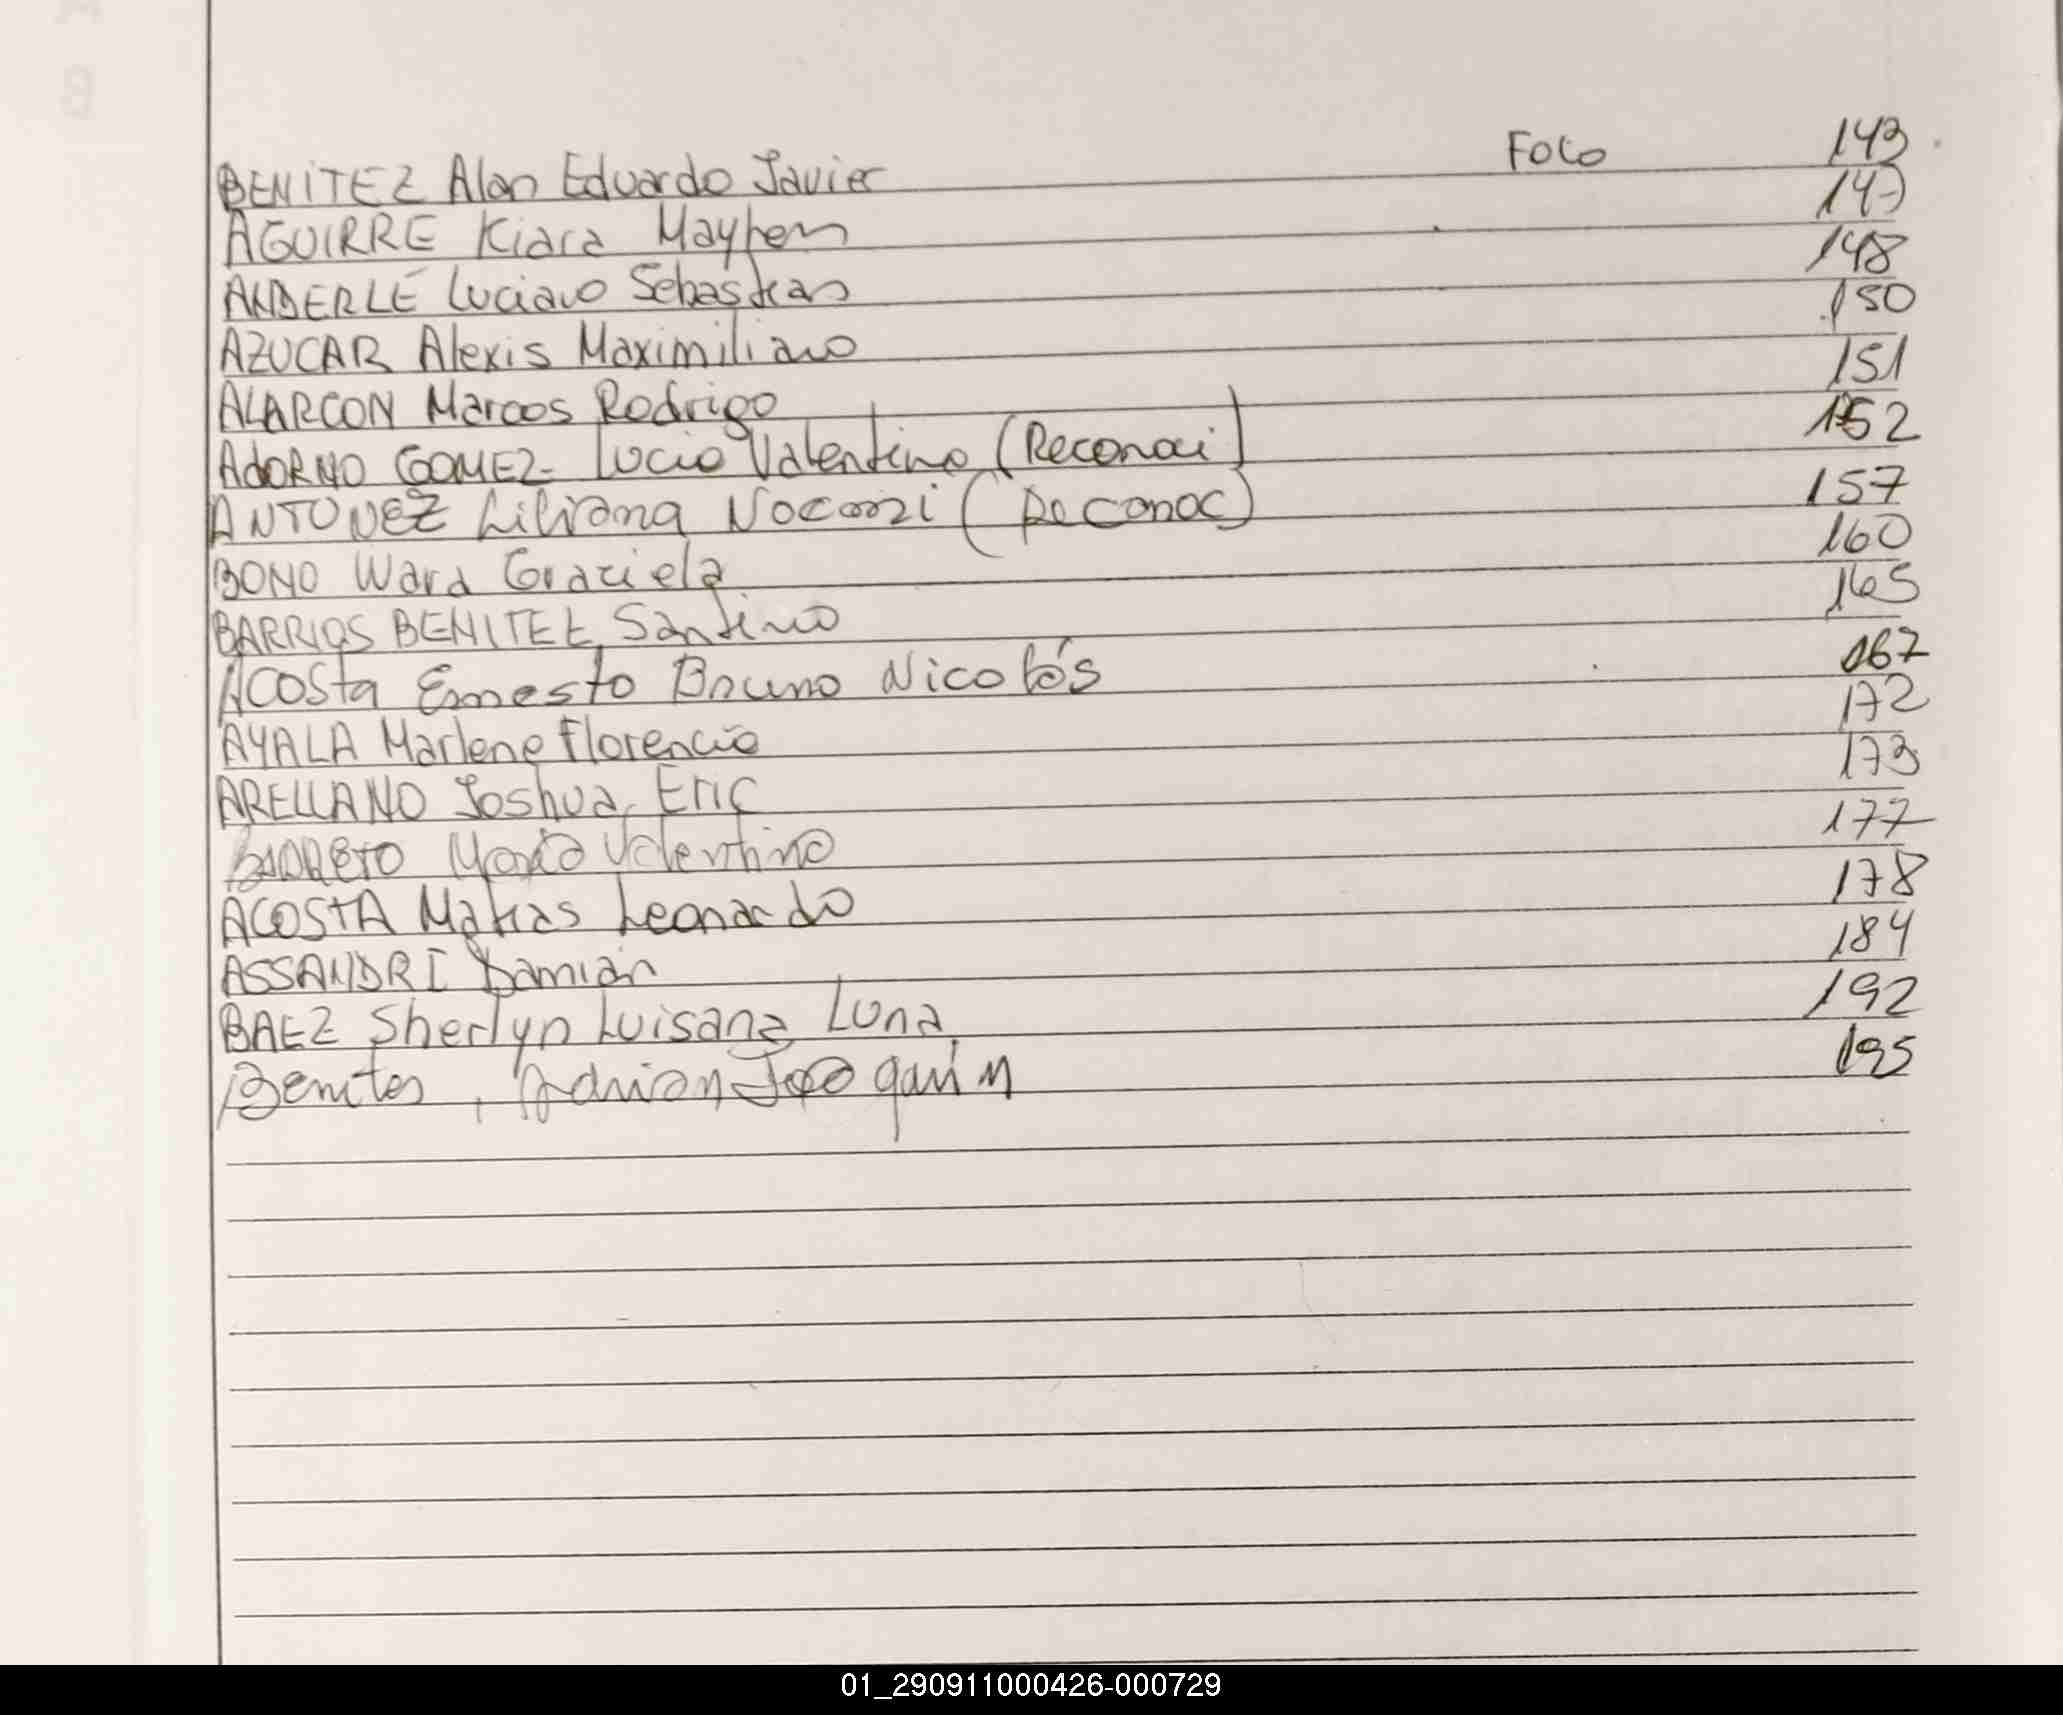 BENITEZ Alan Eduardo Javier Folio 143
AGUIRRE Kiara Maylen 147
ANDERLE Luciano Sebastian 148
AZUCAR Alexis Maximiliano 150
ALARCON Marcos Rodrigo 151
ADORNO GOMEZ Lucio Valentino (Reconoci) 152
ANTUNEZ Liliana (Reconoc) 157
BONO Ward Graciela 160
BARRIOS BENITEZ, Santino 165
ACOSTA Ernesto Bruno Nicolás 167
AYALA Marlene Florencia 172
ARELLANO Joshua Eric 173
Valentino 177
ACOSTA Matias Leonardo 178
ASSANDRI Damian 184
BAEZ Sherlyn Luisana Luna 192
Benites, Adrian Joaquin 195
01_290911000426-000729